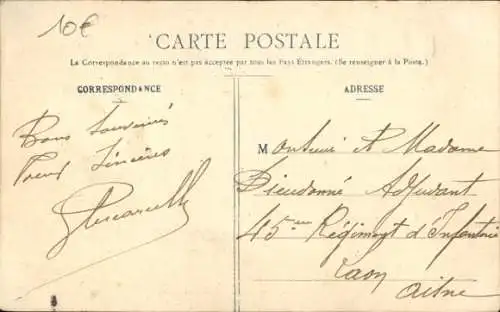 10€
CARTE POSTALE
La Correspondance au recto n'est pas acceptée par tous les Pays Étrangers. (Se renseigner à la Poste.)
CORRESPONDANCE
Bons Souvenirs
Voeux Sincères
ADRESSE
Monsieur et Madame
Dieudonné Adjudant
45eme Régiment d'Infanterie
Laon
Aisne